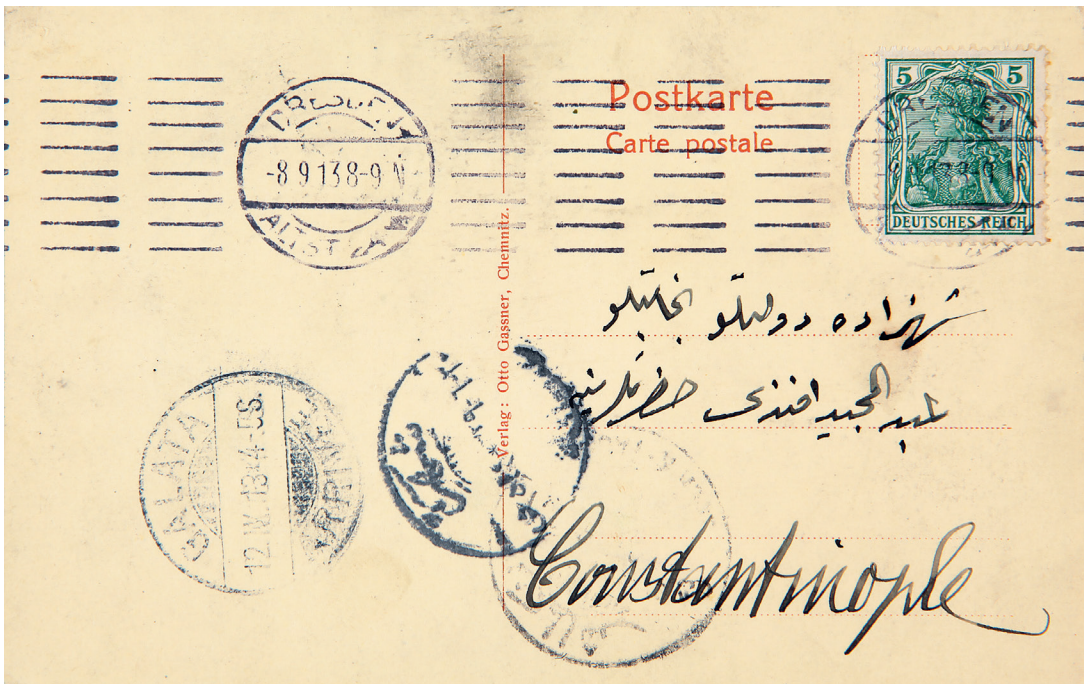 Postkarte
Carte postale
5 5
DEUTSCHES REICH
DRESDEN
-8 9 13 8-9 N
ALTST
Verlag: Otto Gassner, Chemnitz.
شهزاده دولتلو نجابتلو
عبد المجید افندی حضرتلرینه
Constantinople
GALATA
12 IX. 13 4-5 S.
ARRIVÉE